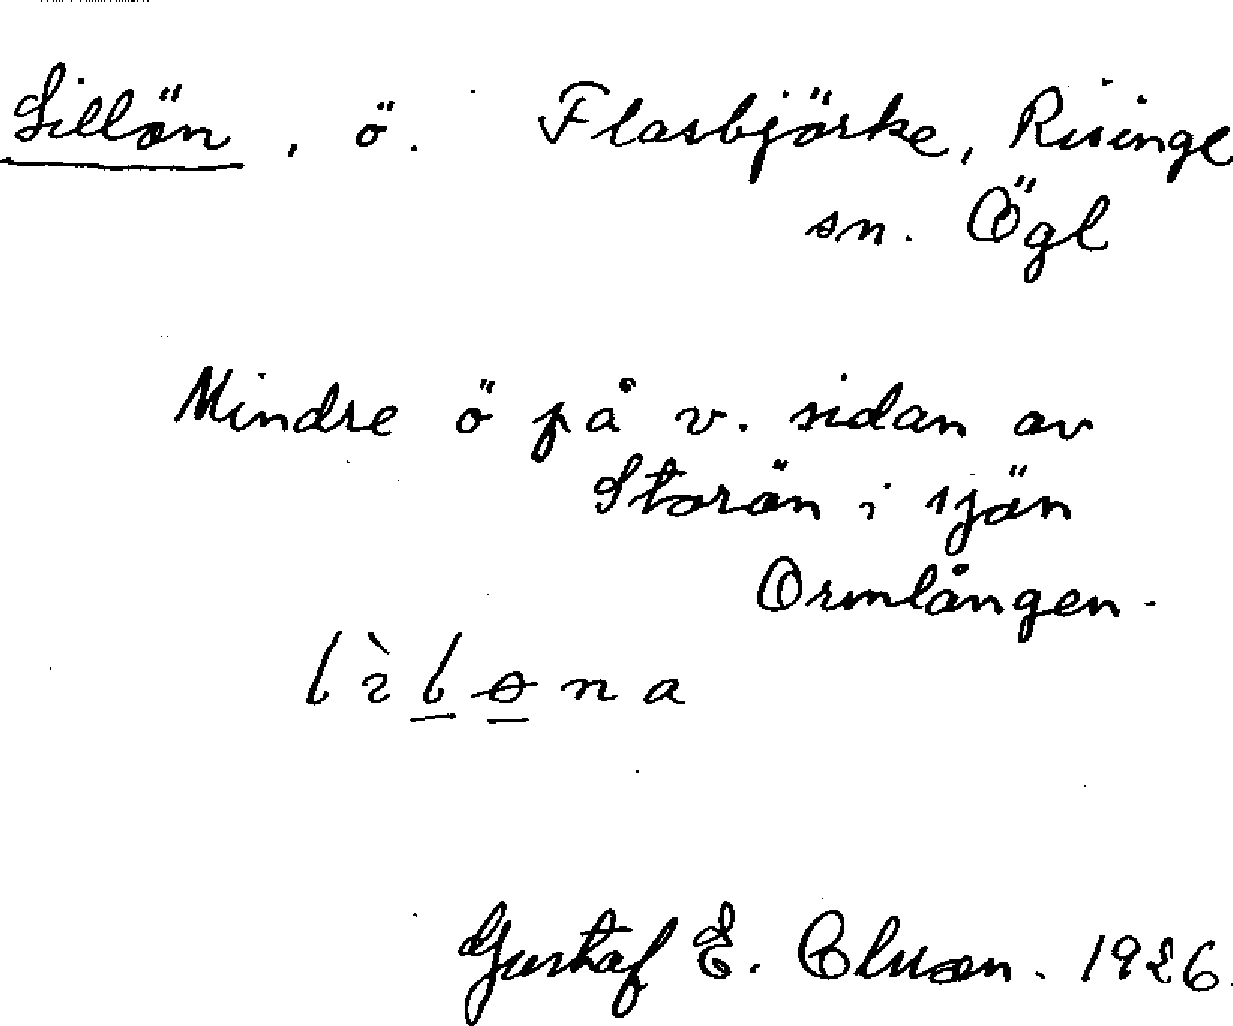 Lillön, ö. Flasbjörke, Risinge
sn. Ögl
Mindre ö på v. sidan av
Storön i sjön
Ormlången.
lìl̲ɵ̲na
Gustaf E. Olsson. 1926.